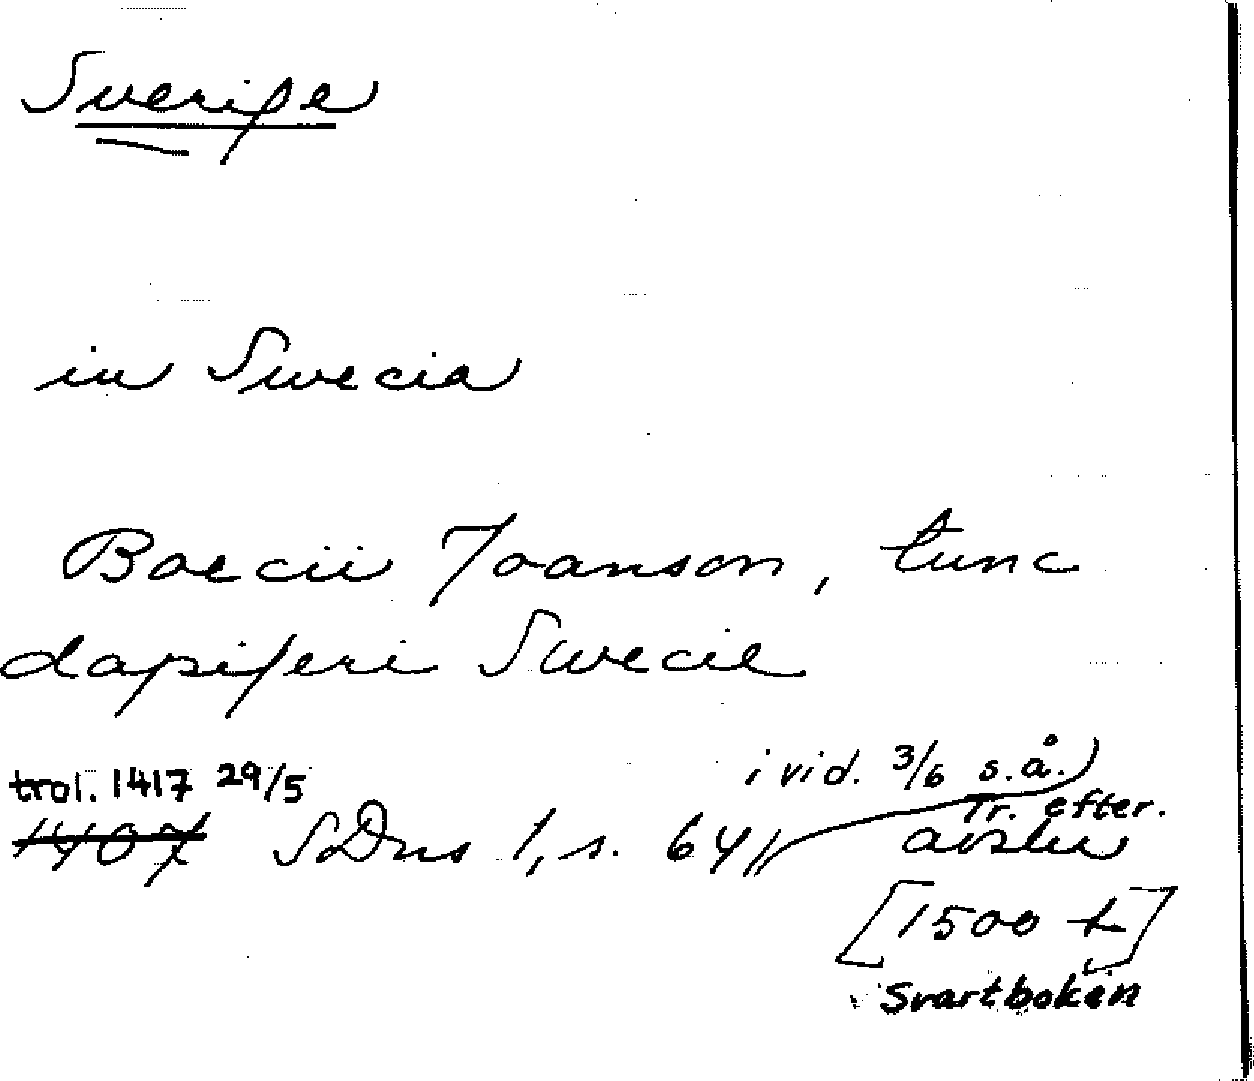 Sverige
in Swecia
Boecii Joanson, tunc
dapiferi Swecie
trol. 1417 29/5 i vid. 3/6 s.å.)
1407 SDns 1, s. 64 Tr. efter.
avskr
[1500 t]
Svartboken